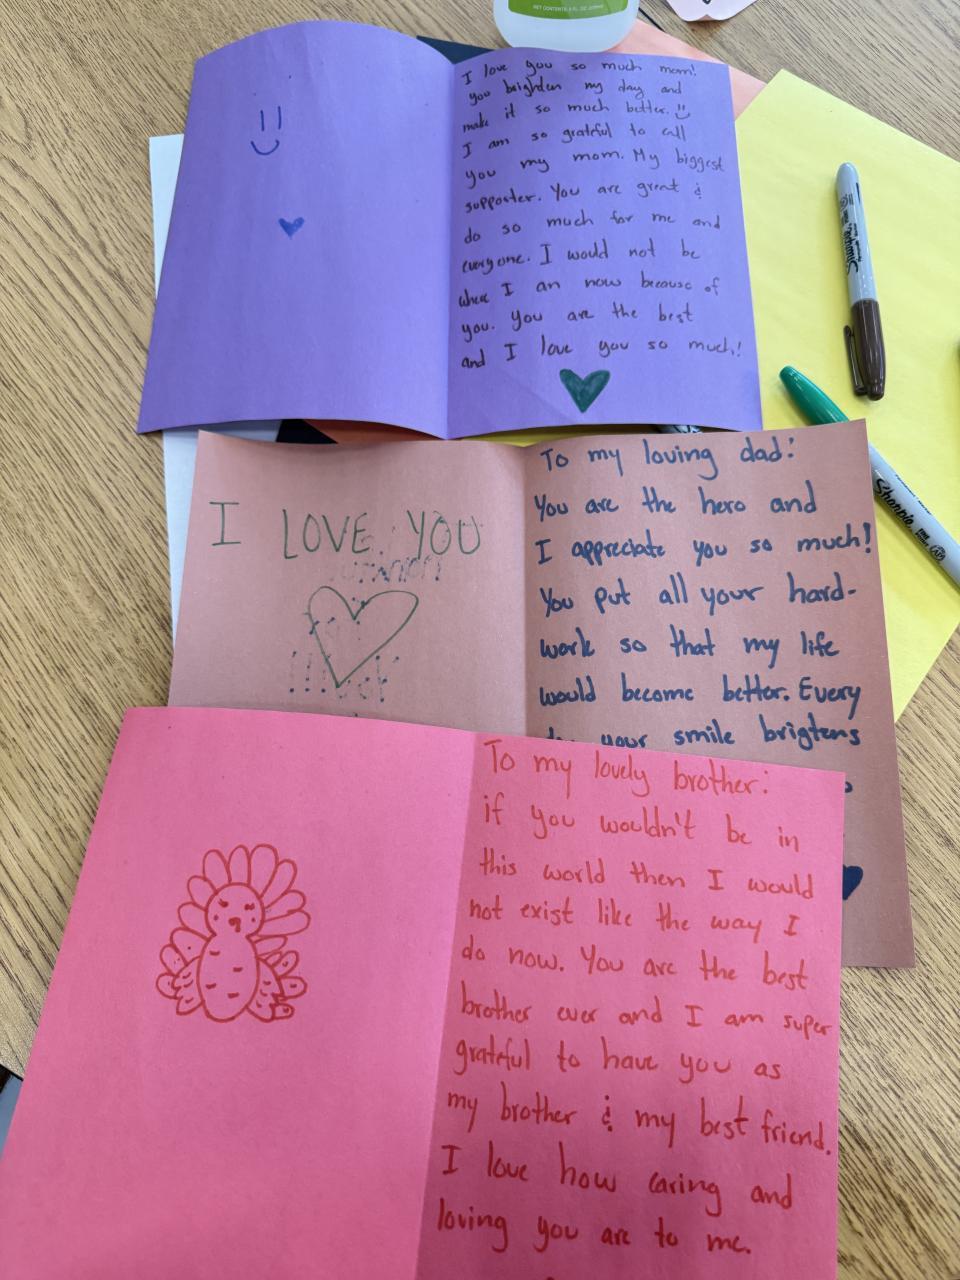 I love you so much mom!
you brighten my day and
make it so much better.
I am so grateful to call
you my mom. My biggest
supposter. You are great &
do so much for me and
everyone. I would not be
where I am now because of
you. You are the best
and I love you so much!
I LOVE YOU
To my loving dad!
You are the hero and
I appreciate you so much!
You put all your hard-
work so that my life
would become better. Every
your smile brigtens
To my lovely brother:
if you wouldn't be in
this world then I would
not exist like the way I
do now. You are the best
brother ever and I am super
grateful to have you as
my brother & my best friend.
I love how caring and
loving you are to me.
Sharpie